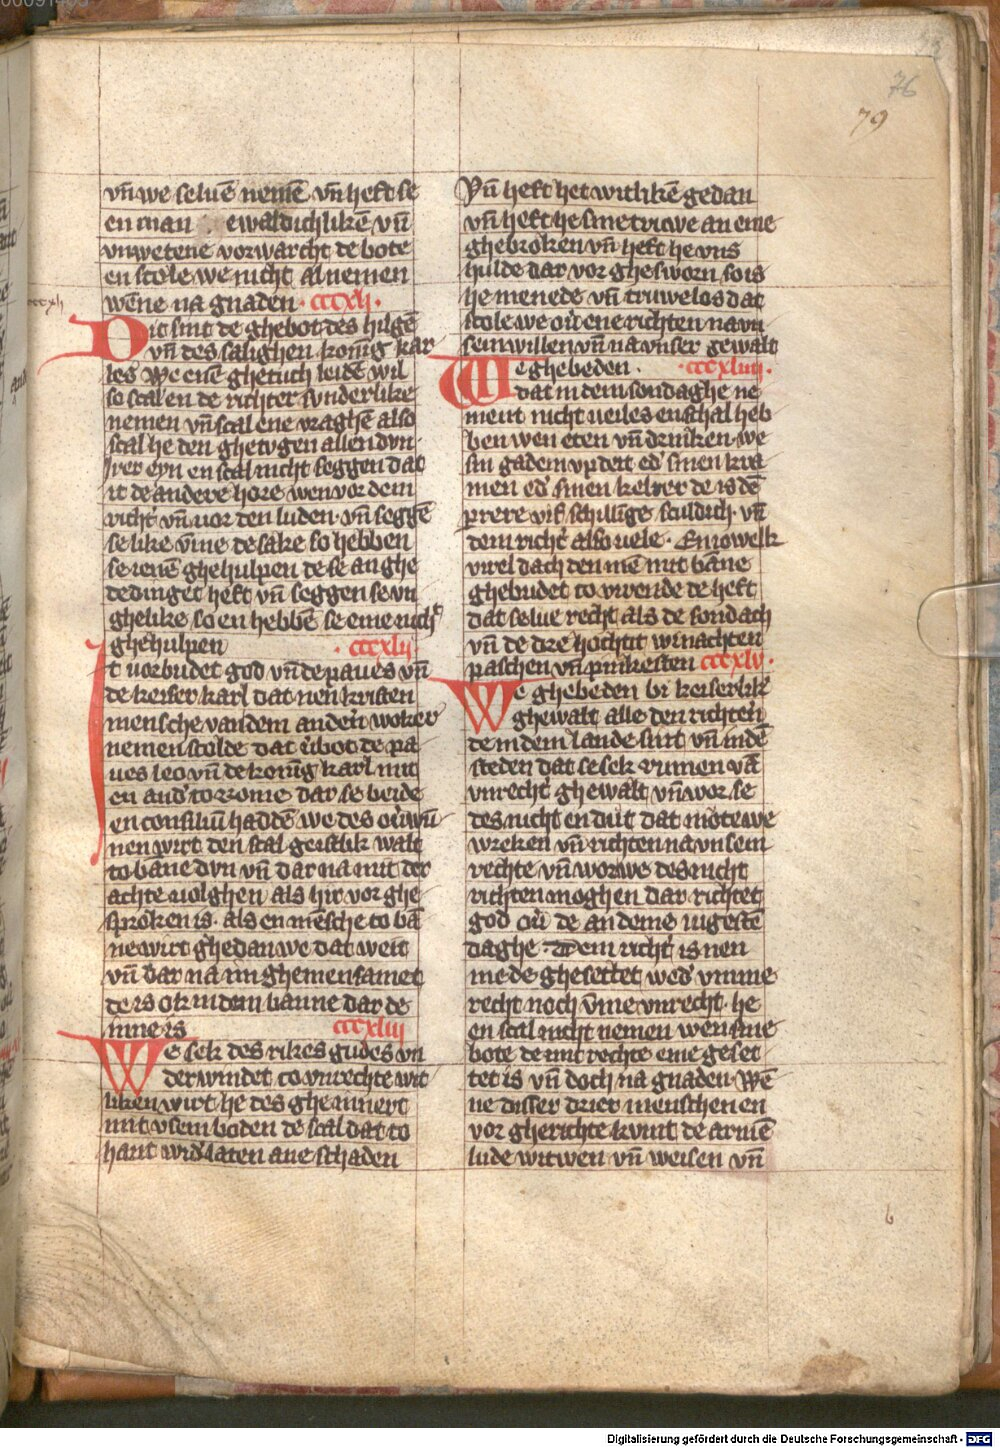 vn̄ we seluē nemē vn̄ heft se
en man ewaldichlikē vn̄
vnwetene vorwarcht de bote
en scole we nicht al nemen
wēne na gnaden · cccxli ·
Dit sint de ghebot des hilgē
vn̄ des salighen konīg kar
les We enē ghetuch leidē wil
so scal en de richter svnderlike
nemen vn̄ scal ene vraghē also
scal he den ghetvgen allen dvn ·
Jrer eyn en scal nicht seggen dat
it de andere hore wen vor dem
richt̄ vn̄ vor den luden · vn̄ seggē
se like v̄me de sake so hebben
se ieuē ghehulpen de se an ghe
dedinget heft vn̄ seggen se vn
ghelike so en hebbē se eme nich
ghehulpen · cccxlii ·
It vorbudet god vn̄ de paues vn̄
de keiser karl dat nen kristen
mensche van dem andern̄ woker
nemen scolde dat v̄bot de pa
ues leo vn̄ de konīg karl mit
en and' to rome dar se beide
en consiliū haddē we des ou̇wū
nen wirt den scal geistlik walt
to bāne dvn vn̄ dar na mit der
achte uolghen als hir vor ghe
sproken is · als en mēsche to bā
ne wirt ghedan we dat weit
vn̄ dar na im ghemensamet
de is ok in dem banne dar de
inne is cccxliii
We sek des rikes gudes vn
derwindet to vnrechte wit
liken wirt he des ghe innert
mit vsem boden de scal dat to
hant wid' laten ane schaden
Vn̄ heft het witlikē gedan
vn̄ heft he sine truwe an eme
ghebroken vn̄ heft he vns
hulde dar vor ghesworn so is
he menede vn̄ truwelos dat
scole we ou̇ ene richten na vn
sem willen vn̄ na vnser gewalt
We ghebeden · · cccxliiii ·
dat in dem sondaghe ne
ment nicht ueiles en schal heb
ben wen eten vn̄ drinken · we
sin gadem vp deit ed' sinen kra
men ed' sinen kelrer de is dē
prere vif schillīge sculdich · vn̄
dem richt̄ also uele · En iowelk
virel dach den mē mit bāne
ghebudet to virende de heft
dat selue recht als de sondach
vn̄ de dre hochtit winachten
paschen vn̄ pinkesten cccxlv ·
We ghebeden bi keiserlik̄
ghewalt alle den richtern̄
de in dem lande sint vn̄ in dē
steden dat se sek rumen vā
vnrecht̄ ghewalt vn̄ wor se
des nicht en dut dat mote we
wreken vn̄ richten na vnsem
rechte vn̄ wor we des nicht
richten moghen dar richtet
god ou̇ de an deme iugestē
daghe · Dem richt̄ is nen
mede ghesettet wed' vmme
recht noch v̄me vnrecht · he
en scal nicht nemen wen sine
bote de mit rechte eme geset
tet is vn̄ doch na gnaden · Wē
ne disser drier menschen en
vor gherichte kvmt de armē
lude witwen vn̄ weisen vn̄
76
79
6
Digitalisierung gefördert durch die Deutsche Forschungsgemeinschaft - DFG